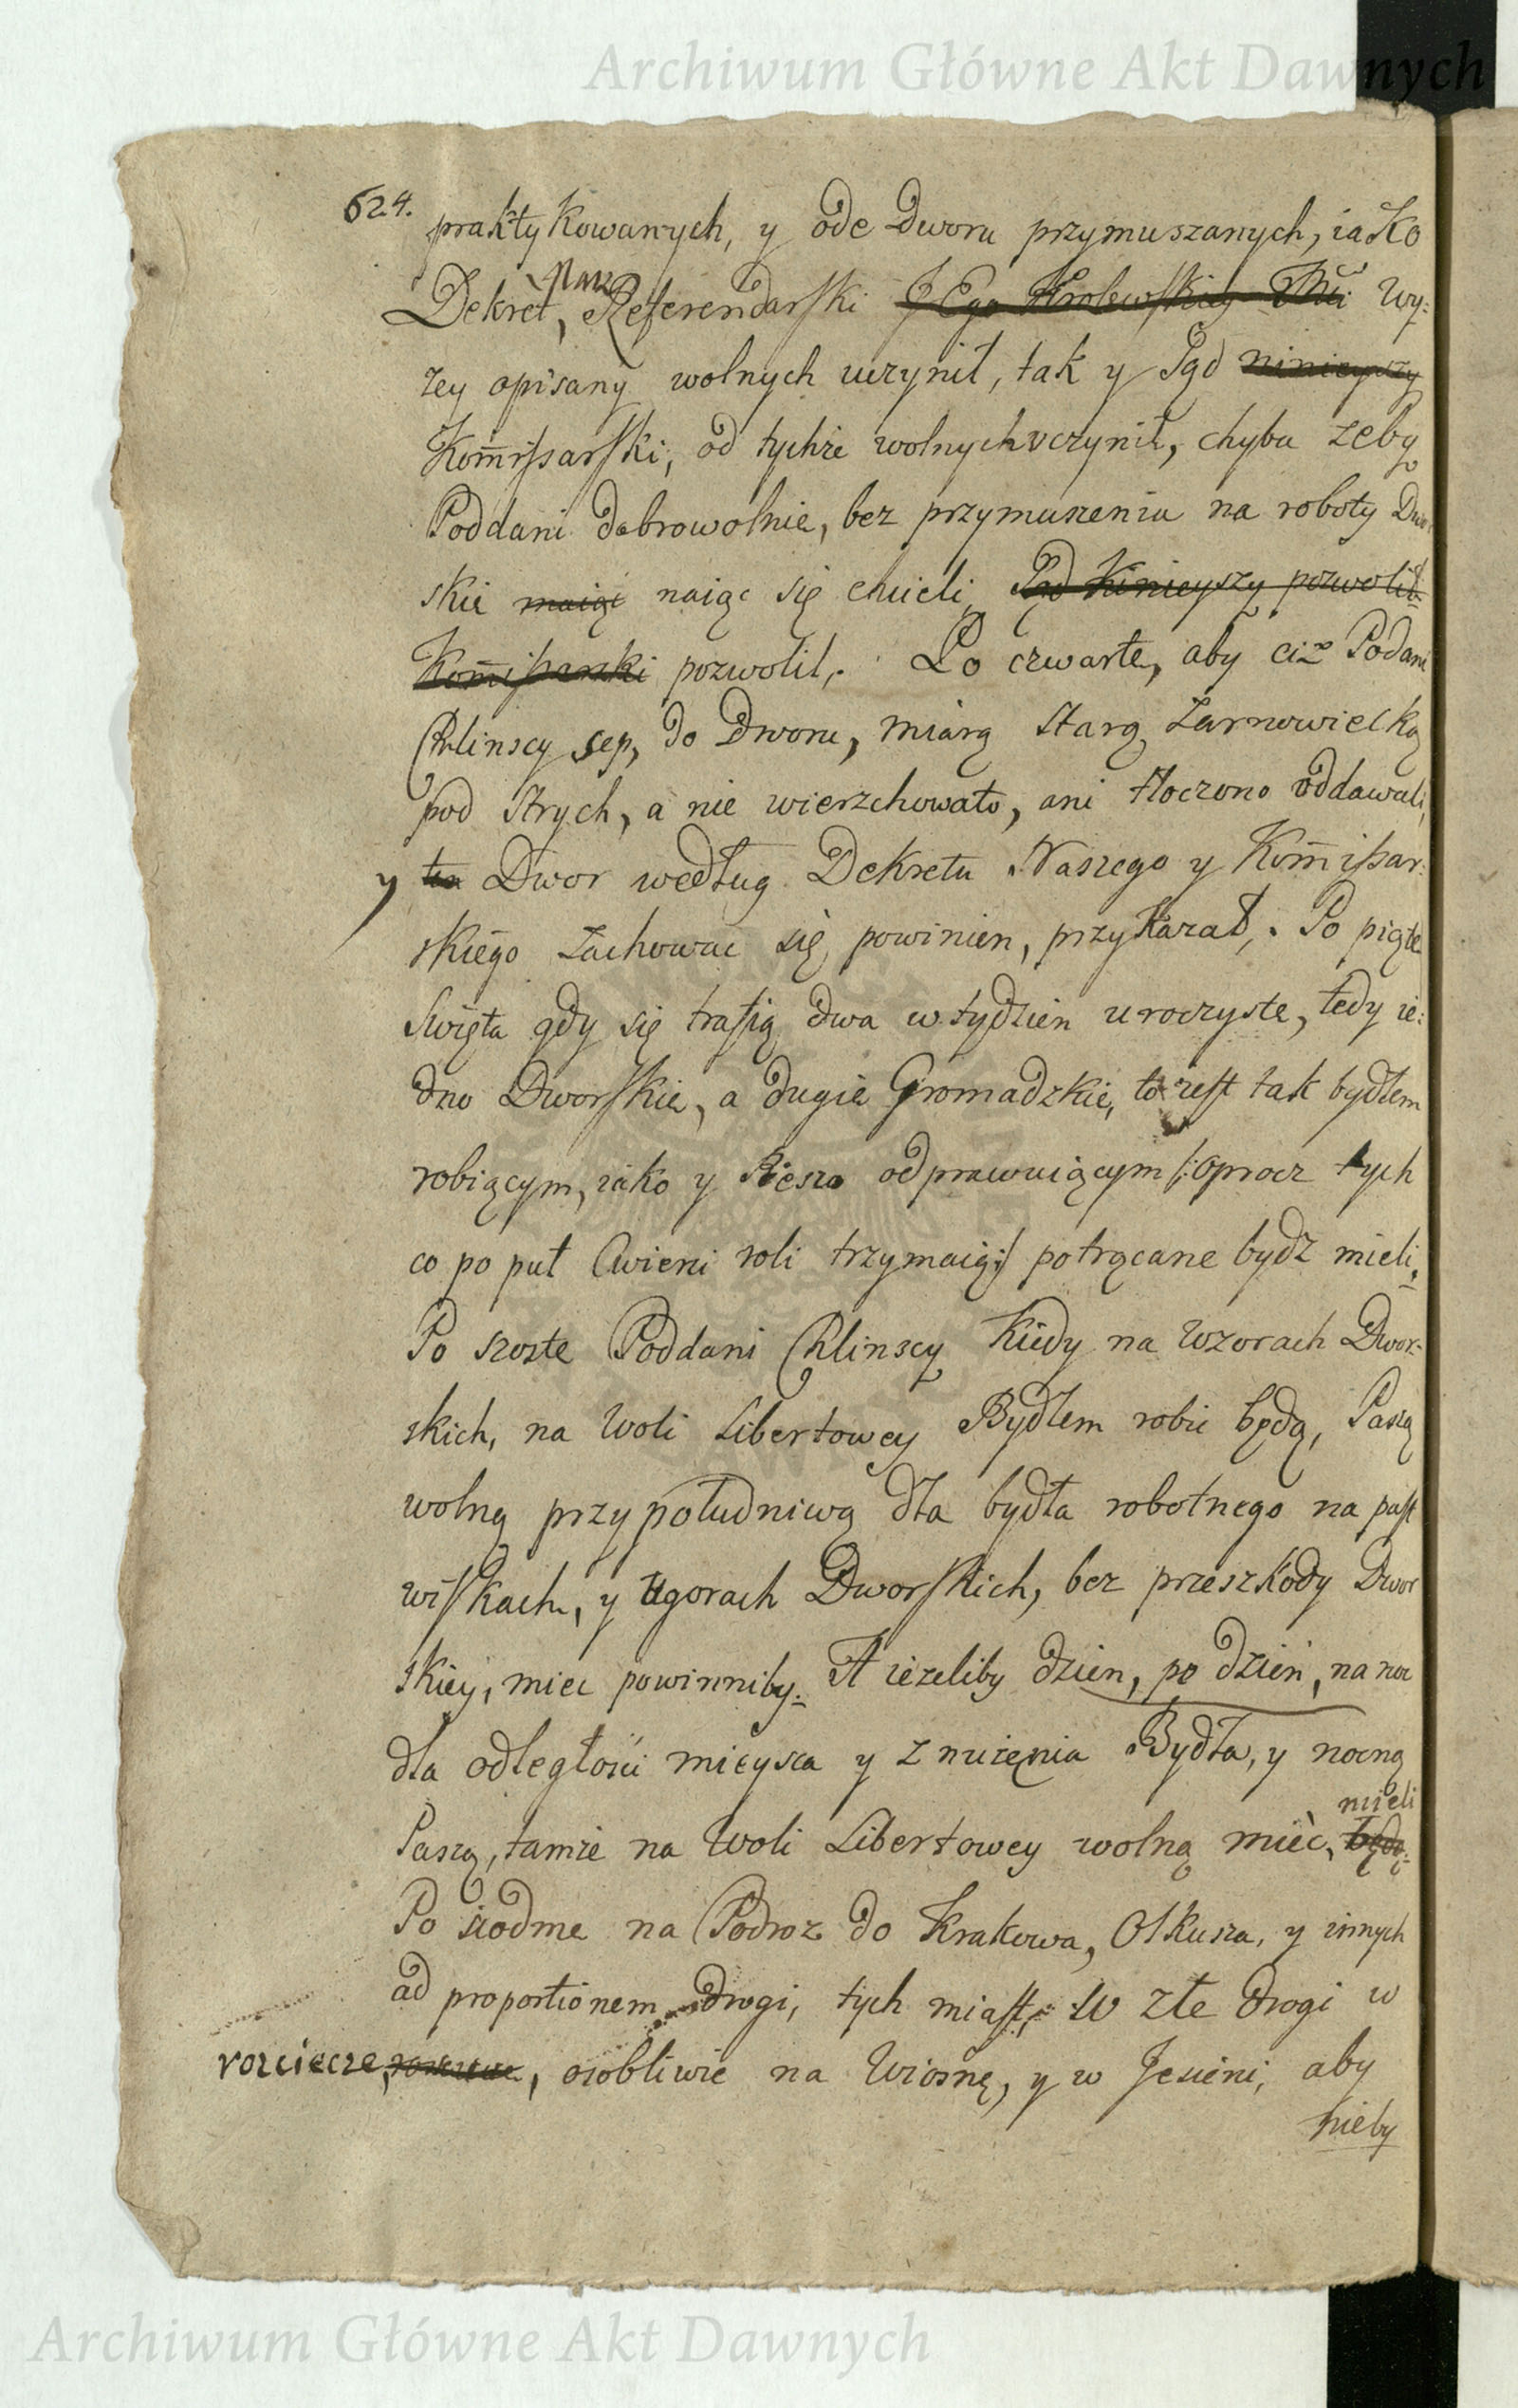 Archiwum Główne Akt Dawnych
624.
praktykowanych, y ode Dworu przymuszanych, iako
Nasz
Dekret, Referendarski JEgo Krolewskiey Mći Wy:
zey opisany wolnych uczynił, tak y Sąd ninieyszy
Kom̄issarski, od tychże wolnych vczynił, chyba zeby
Poddani dobrowolnie, bez przymuszenia na roboty Dwor
skie maiąc naiąc się chcieli, Sąd Ninieyszy pozwolił
Kom̄issarski pozwolił. Po czwarte, aby ciż Podani
Chlinscy sep, do Dworu, miarą Starą Zarnowiecką
pod Strych, a nie wierzchowato, ani tłoczono oddawali,
y ten Dwor według Dekretu Naszego y Kom̄issar:
skiego zachowac się powinien, przykazał, . Po piąte
Swięta gdy się trafią dwa w tydzien uroczyste, tedy ie:
dno Dworskie, a dugie Gromadzkie, to iest tak bydłem
robiącym, iako y Pieszo odprawuiącym /: oprocz tych
co po puł Cwierci roli trzymaią :/ potrącane bydz mieli.
Po szoste Poddani Chlinscy kiedy na Wzorach Dwor:
skich, na Woli Libertowey Bydłem robic będą, Paszą
wolną przypołudniwą dla bydła robotnego na past
wiskach, y Ugorach Dworskich, bez przeszkody Dwor
skiey, miec powinniby. A iezeliby dzien, po dzień, na noc
dla odległości mieysca y znużenia Bydła, y nocną
mieli
Paszą, tamże na Woli Libertowey wolną mieć, będą.
Po siodme na Podroz do Krakowa, Olkusza, y innych
ad proportionem drogi, tych miast, W złe drogi w
rozciecze, , osobliwie na Wiosnę, y w Jesieni, aby
nieby
Archiwum Główne Akt Dawnych